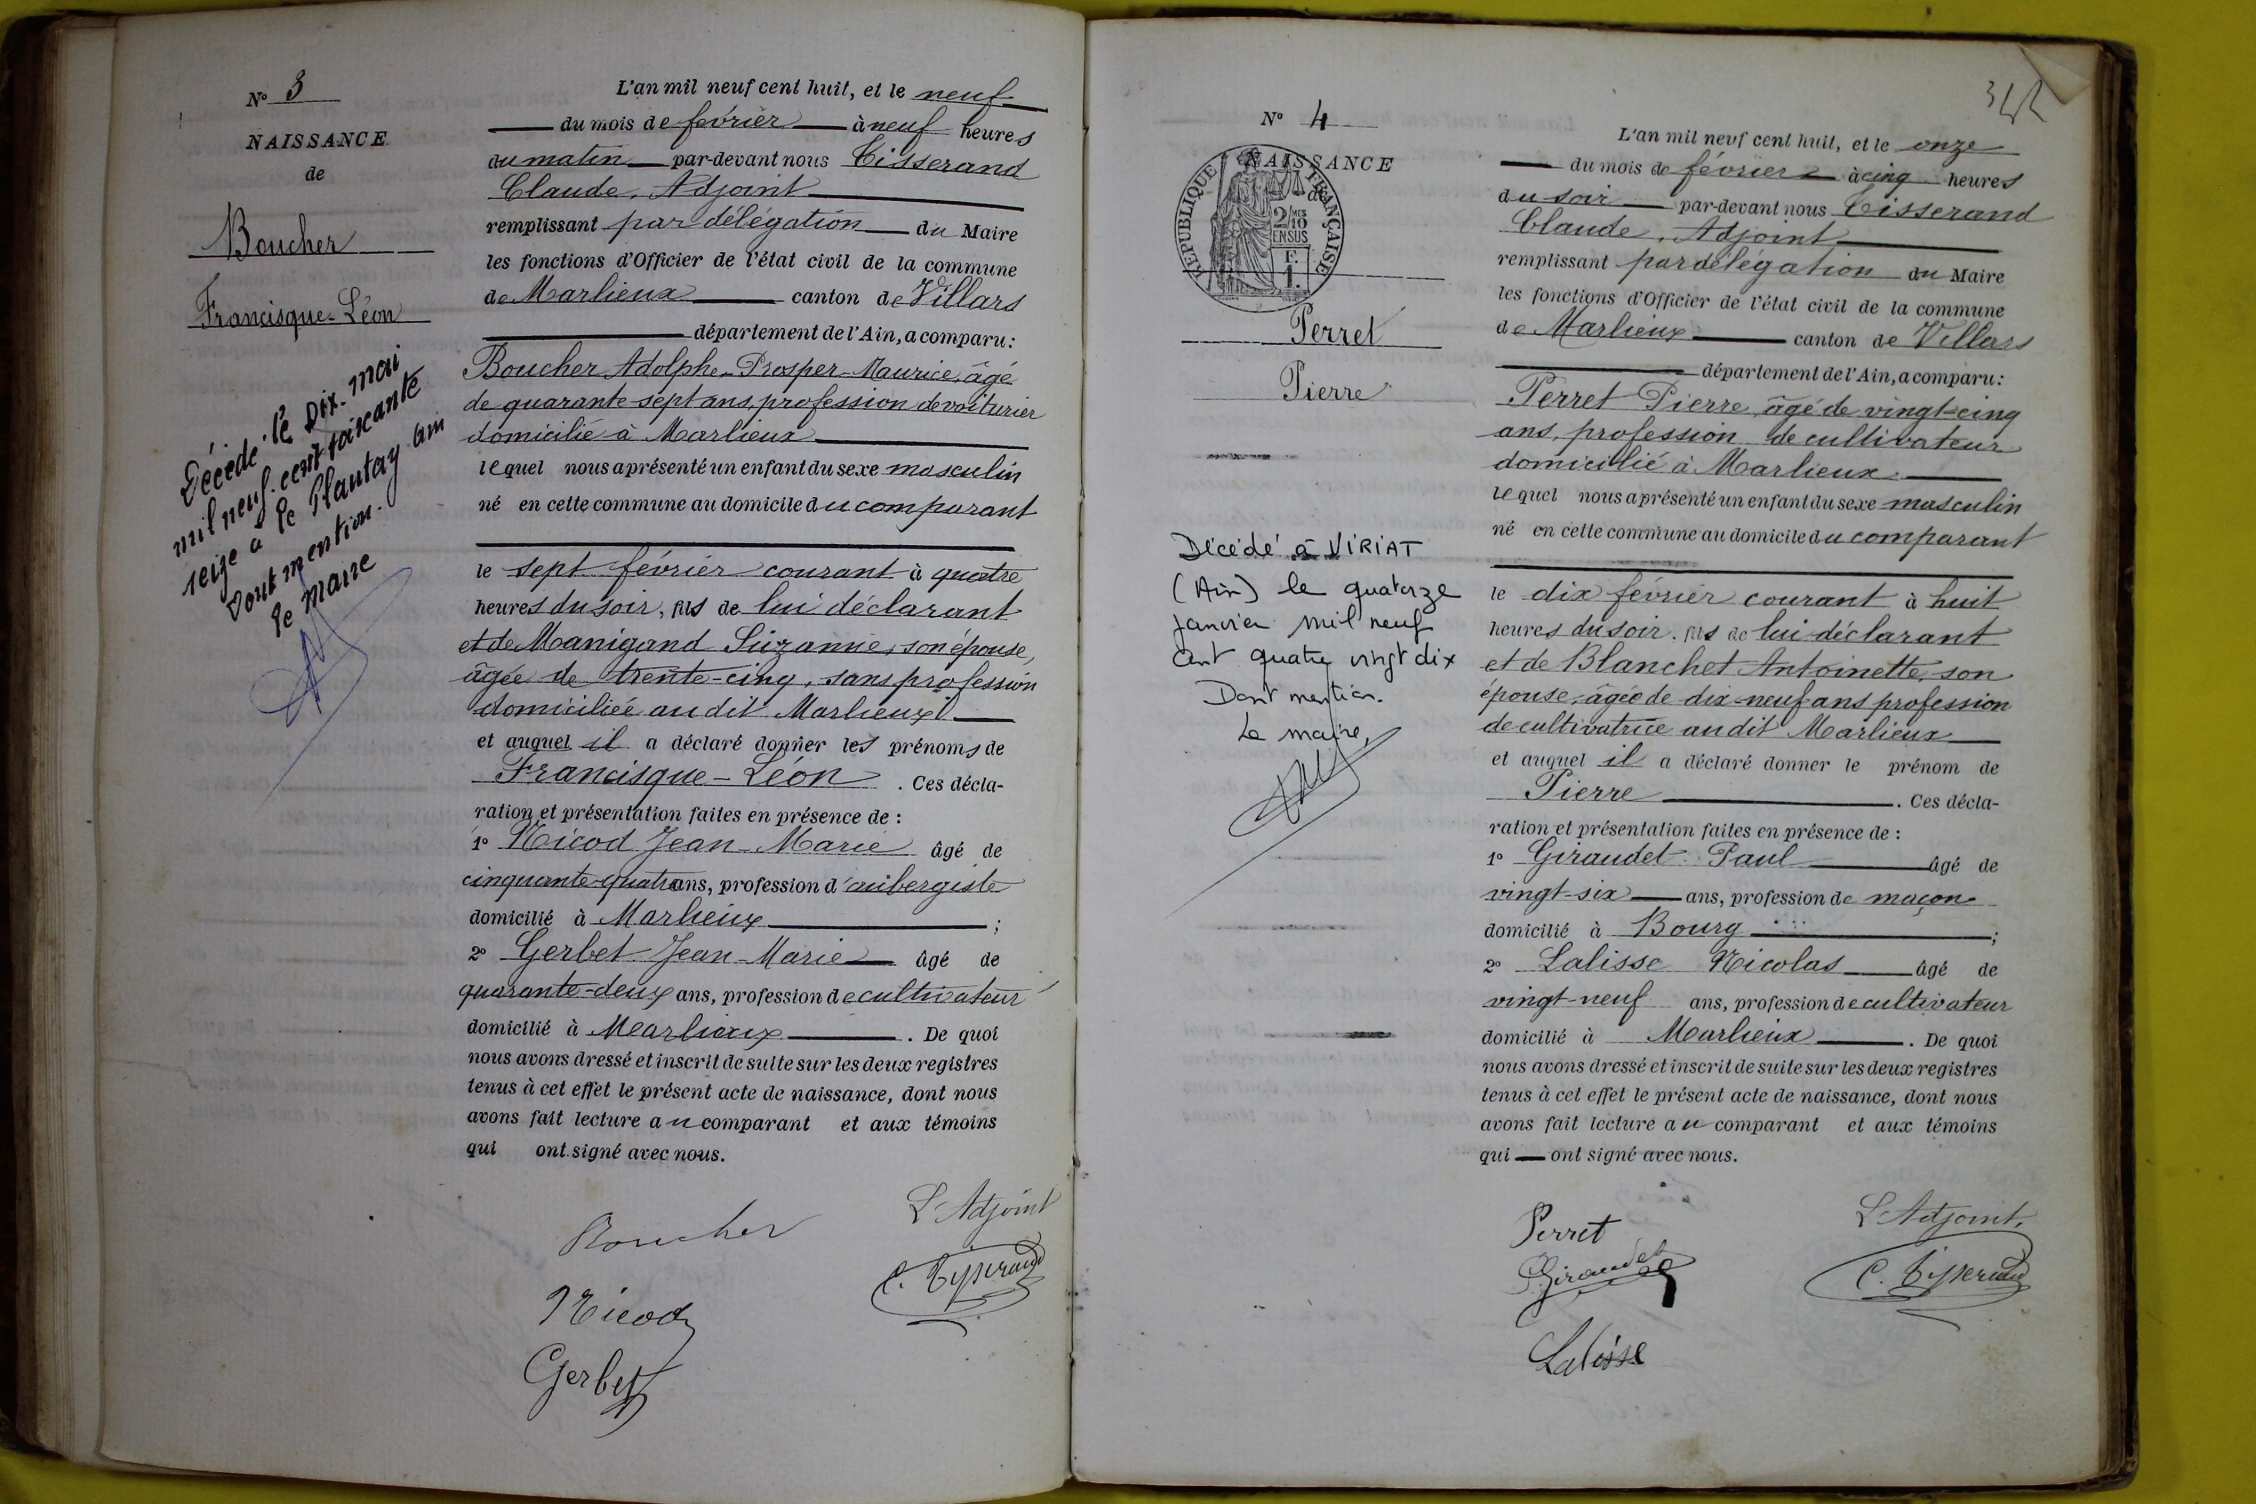 N° 3
NAISSANCE
de
Boucher
Francisque-Léon
Décédé le Dix mai
mil neuf cent soixante
seize à le Plantay Ain
Dont mention.
le Maire
L'an mil neuf cent huit, et le neuf
du mois de février à neuf heures
du matin par-devant nous Tisserand
Claude, Adjoint
remplissant par délégation du Maire
les fonctions d'Officier de l'état civil de la commune
de Marlieux canton de Villars
département de l'Ain, a comparu:
Boucher Adolphe-Prosper-Maurice, âgé
de quarante-sept ans, profession de voiturier
domicilié à Marlieux
lequel nous a présenté un enfant du sexe masculin
né en cette commune au domicile du comparant
le sept février courant à quatre
heures du soir, fils de lui déclarant
et de Manigand Suzanne, son épouse,
âgée de trente-cinq, sans profession
domiciliée au dit Marlieux
et auquel il a déclaré donner les prénoms de
Francisque-Léon. Ces décla-
ration et présentation faites en présence de :
1° Nicod Jean-Marie âgé de
cinquante-quatre ans, profession d'aubergiste
domicilié à Marlieux ;
2° Gerbet Jean-Marie âgé de
quarante-deux ans, profession de cultivateur
domicilié à Marlieux. De quoi
nous avons dressé et inscrit de suite sur les deux registres
tenus à cet effet le présent acte de naissance, dont nous
avons fait lecture au comparant et aux témoins
qui ont signé avec nous.
Boucher
L'Adjoint
C. Tisserand
Nicod
Gerbet
N° 4
NAISSANCE
de
RÉPUBLIQUE FRANÇAISE
2/10 MES
EN SUS
1 F.
Perret
Pierre
Décédé à VIRIAT
(Ain) le quatorze
janvier mil neuf
cent quatre vingt dix
Dont mention.
Le maire,
342
L'an mil neuf cent huit, et le onze
du mois de février à cinq heures
du soir par-devant nous Tisserand
Claude, Adjoint
remplissant par délégation du Maire
les fonctions d'Officier de l'état civil de la commune
de Marlieux canton de Villars
département de l'Ain, a comparu:
Perret Pierre, âgé de vingt-cinq
ans, profession de cultivateur
domicilié à Marlieux.
lequel nous a présenté un enfant du sexe masculin
né en cette commune au domicile du comparant
le dix février courant à huit
heures du soir. fils de lui déclarant
et de Blanchet Antoinette, son
épouse, âgée de dix-neuf ans profession
de cultivatrice au dit Marlieux
et auquel il a déclaré donner le prénom de
Pierre. Ces décla-
ration et présentation faites en présence de :
1° Giraudet Paul âgé de
vingt-six ans, profession de maçon
domicilié à Bourg ;
2° Lalisse Nicolas âgé de
vingt-neuf ans, profession de cultivateur
domicilié à Marlieux. De quoi
nous avons dressé et inscrit de suite sur les deux registres
tenus à cet effet le présent acte de naissance, dont nous
avons fait lecture au comparant et aux témoins
qui ont signé avec nous.
Perret
L'Adjoint,
P. Giraudet
C. Tisserand
Lalisse